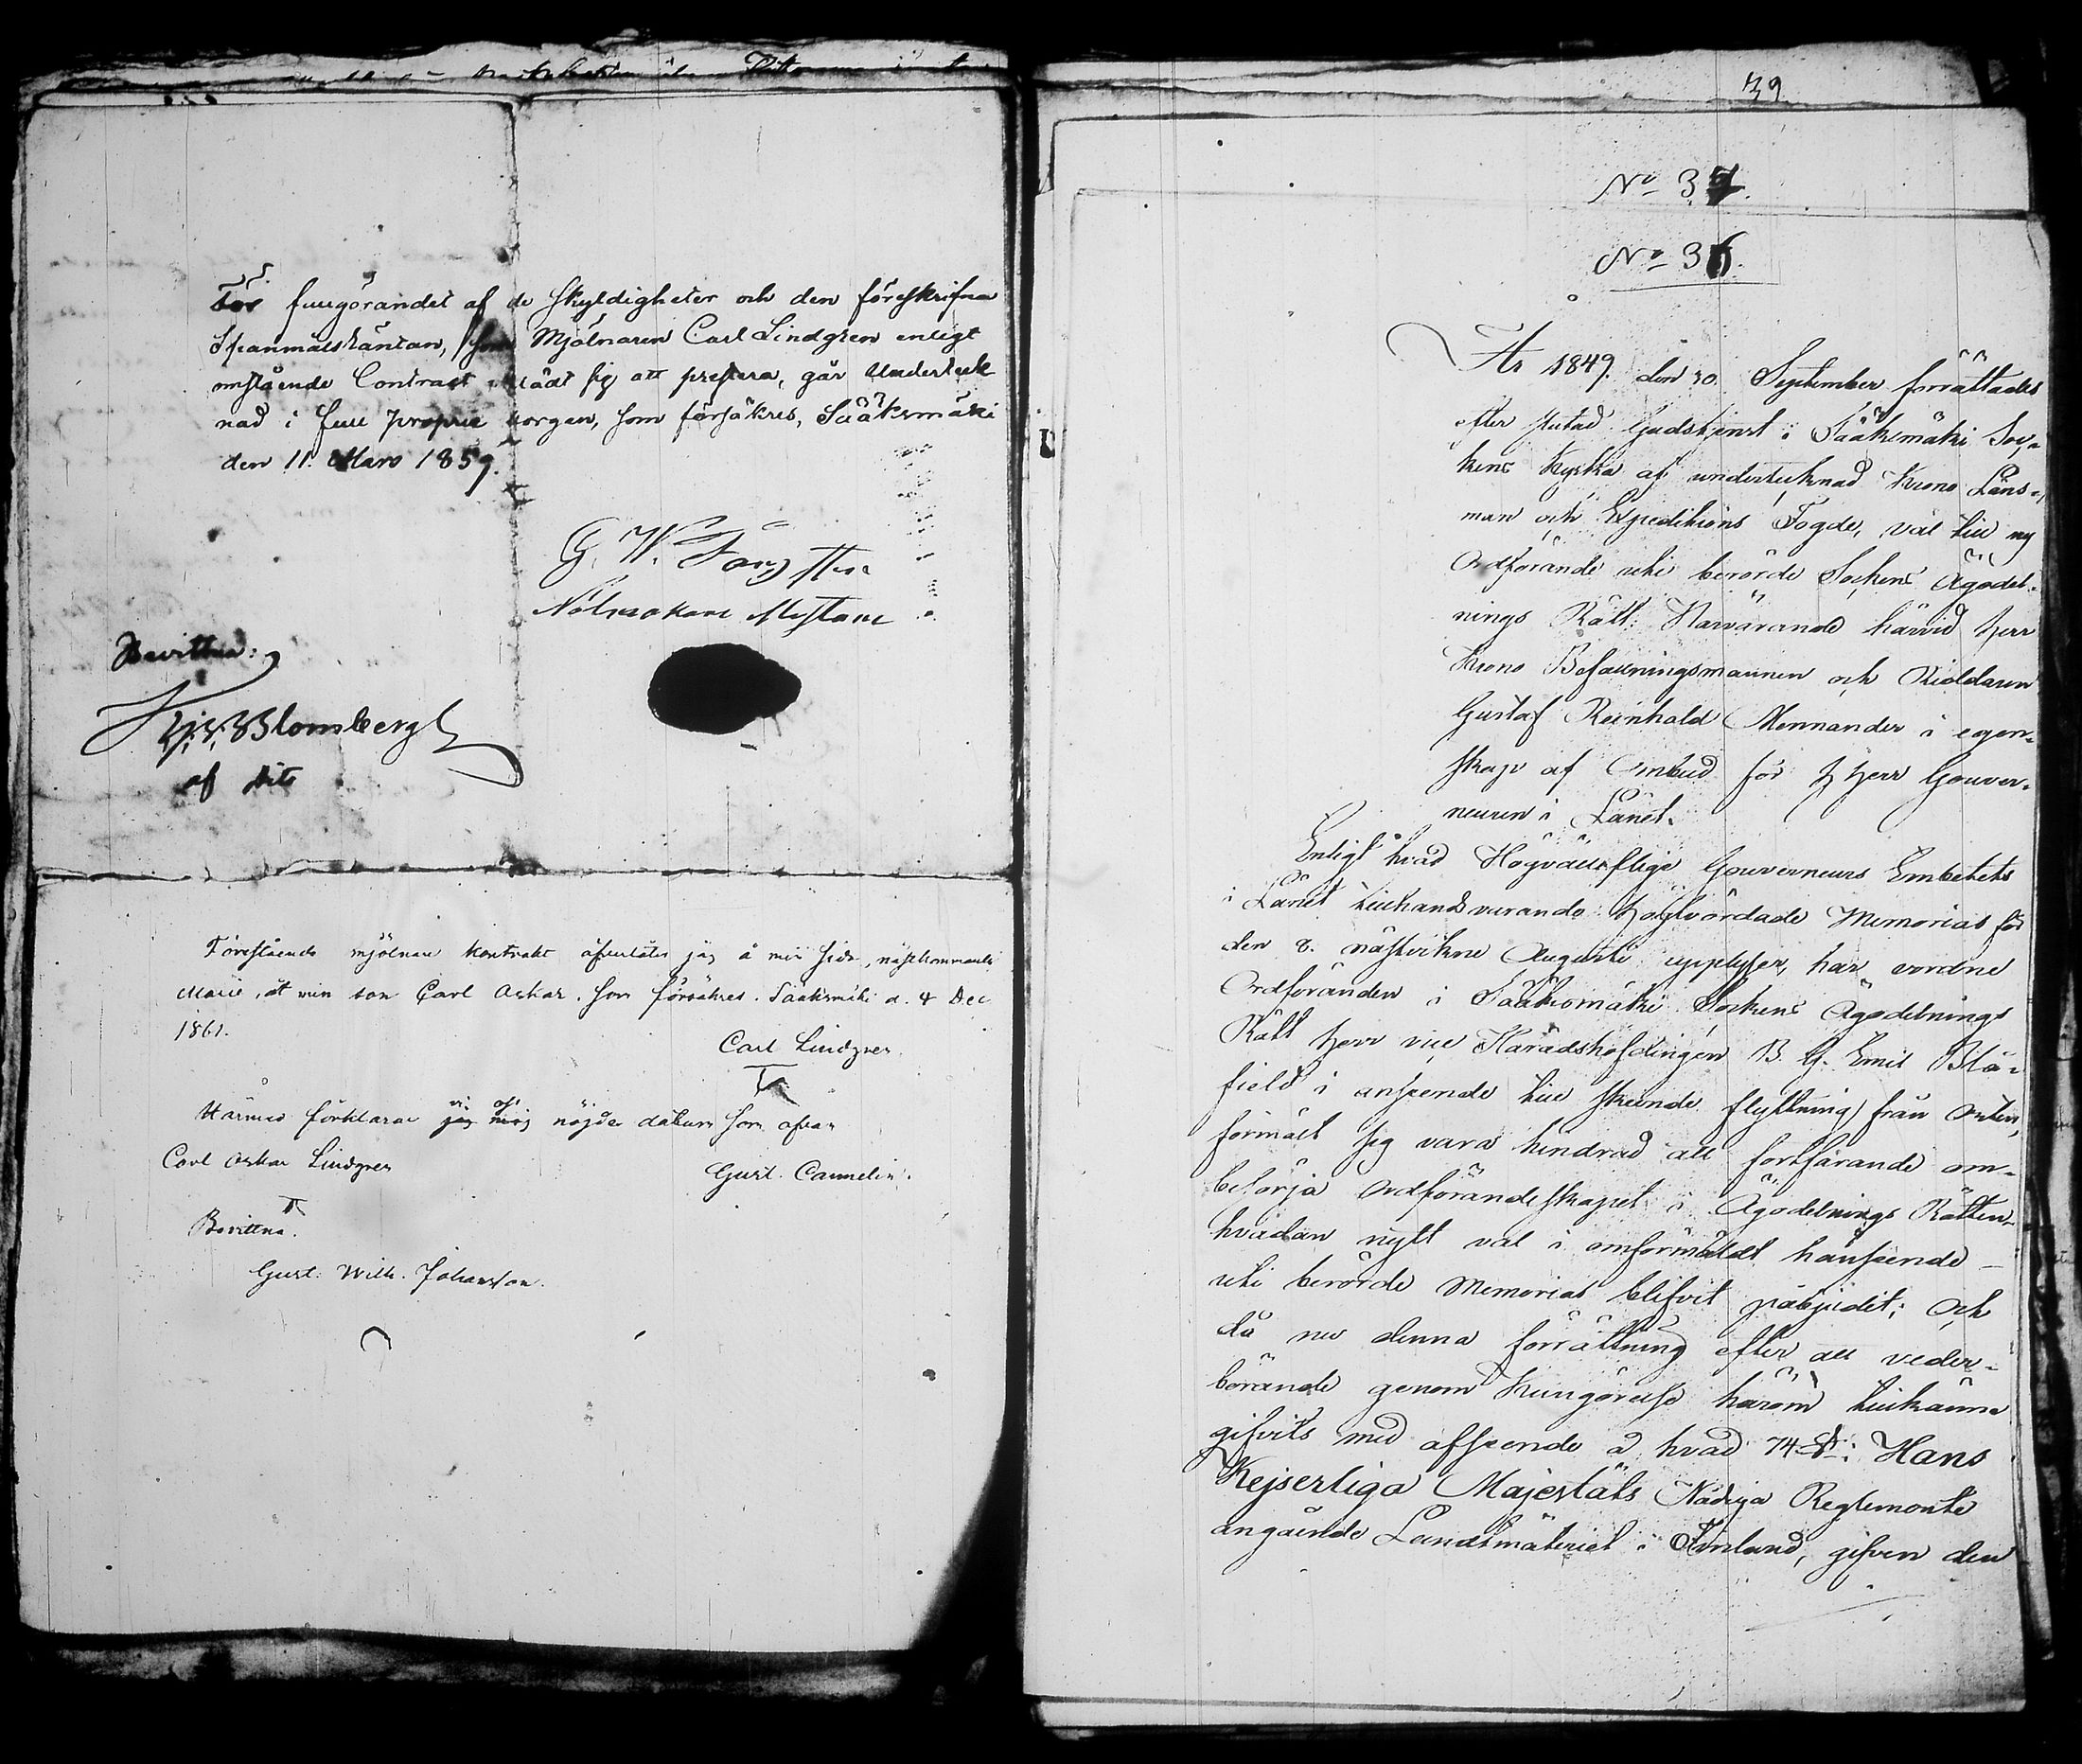 För fullgörandet af de skyldigheter och den föreskrifna
Spanmålsräntan, som Mjölnaren Carl Lindgren enligt
omstående Contract åtlädt sig att prestera, går Underteck
nad i full proprie borgen, som försäkres, Sääksmäki
den 11. Mars 1859.
G. W.
Bevittna:
Blomberg
af dito
Förestående mjölnare kontrakt afventäter jag å min sida, nästkommande
Maii, åt min son Carl Oskar. Som försäkres. Sääksmäki d. 4 Dec
1861.
Carl Lindgren
vi oss
Härmed förklarar jag mig nöjde datum som ofvan
Carl Oskar Lindgren
Gust. Cannelin.
Bevittna.
Gust: Wilh. Johansson.
39
No 37.
No 36.
År 1849. den 30. September förrättades
efter slutad Gudstjenst i Sääksmäki Soc=
kens Kyrka af undertecknad Krono Läns=
man och Expeditions Fogde, val till ny
Ordförande uti berörde Sockens Ägodel=
nings Rätt: Närvarande härvid Herr
Krono Befallningsmannen och Riddaren
Gustaf Reinhold Mennander i egen=
skap af Ombud för H Herr Gouver=
neuren i Länet.
Enligt hvad Högvälloflige Gouverneurs Embetets
i Länet tillhandavarande högtvördade Memorial för
den 8. nästvikne Augusti upplyser, har vordne
Ordföranden i Sääksmäki Sockens Ägodelnings
Rätt Herr vice Häradshöfdingen B. G. Emil Blå=
field i anseende till skeende flyttning från Orten,
förmält sig vara hindrad att fortfarande om=
besörja Ordförandeskapet i Ägodelnings Rätten
hvadan nytt val i omförmäldt hänseende
uti berörde Memorial blifvit påbjudit; Och
då nu denna förrättning efter att veder=
börande genom Kungörelse härom tillkänna
gifvits med afseende å hvad 74 §: i Hans
Kejserliga Majestäts Nådiga Reglemente
angående Landtmäteriet i Finland, gifven den